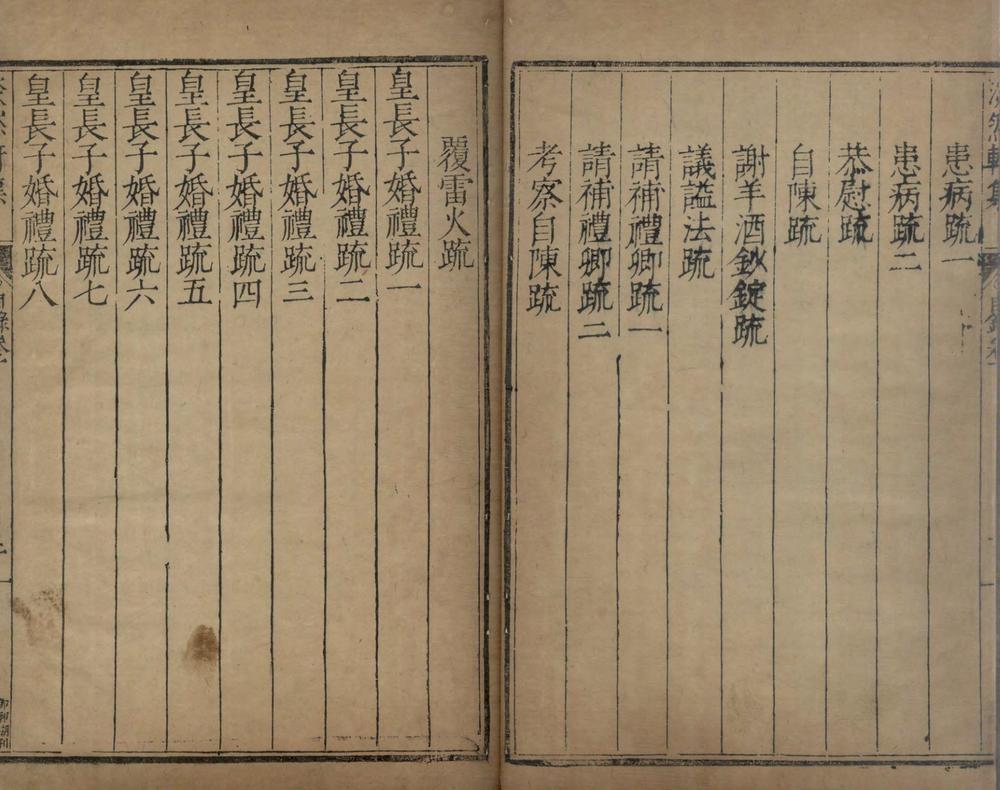 患病疏一
患病疏二
恭慰疏
自陳疏
謝羊酒鈔錠疏
議謚法疏
請補禮卿疏一
請補禮卿疏二
考察自陳疏
覆雷火疏
皇長子婚禮疏一
皇長子婚禮疏二
皇長子婚禮疏三
皇長子婚禮疏四
皇長子婚禮疏五
皇長子婚禮疏六
皇長子婚禮疏七
皇長子婚禮疏八